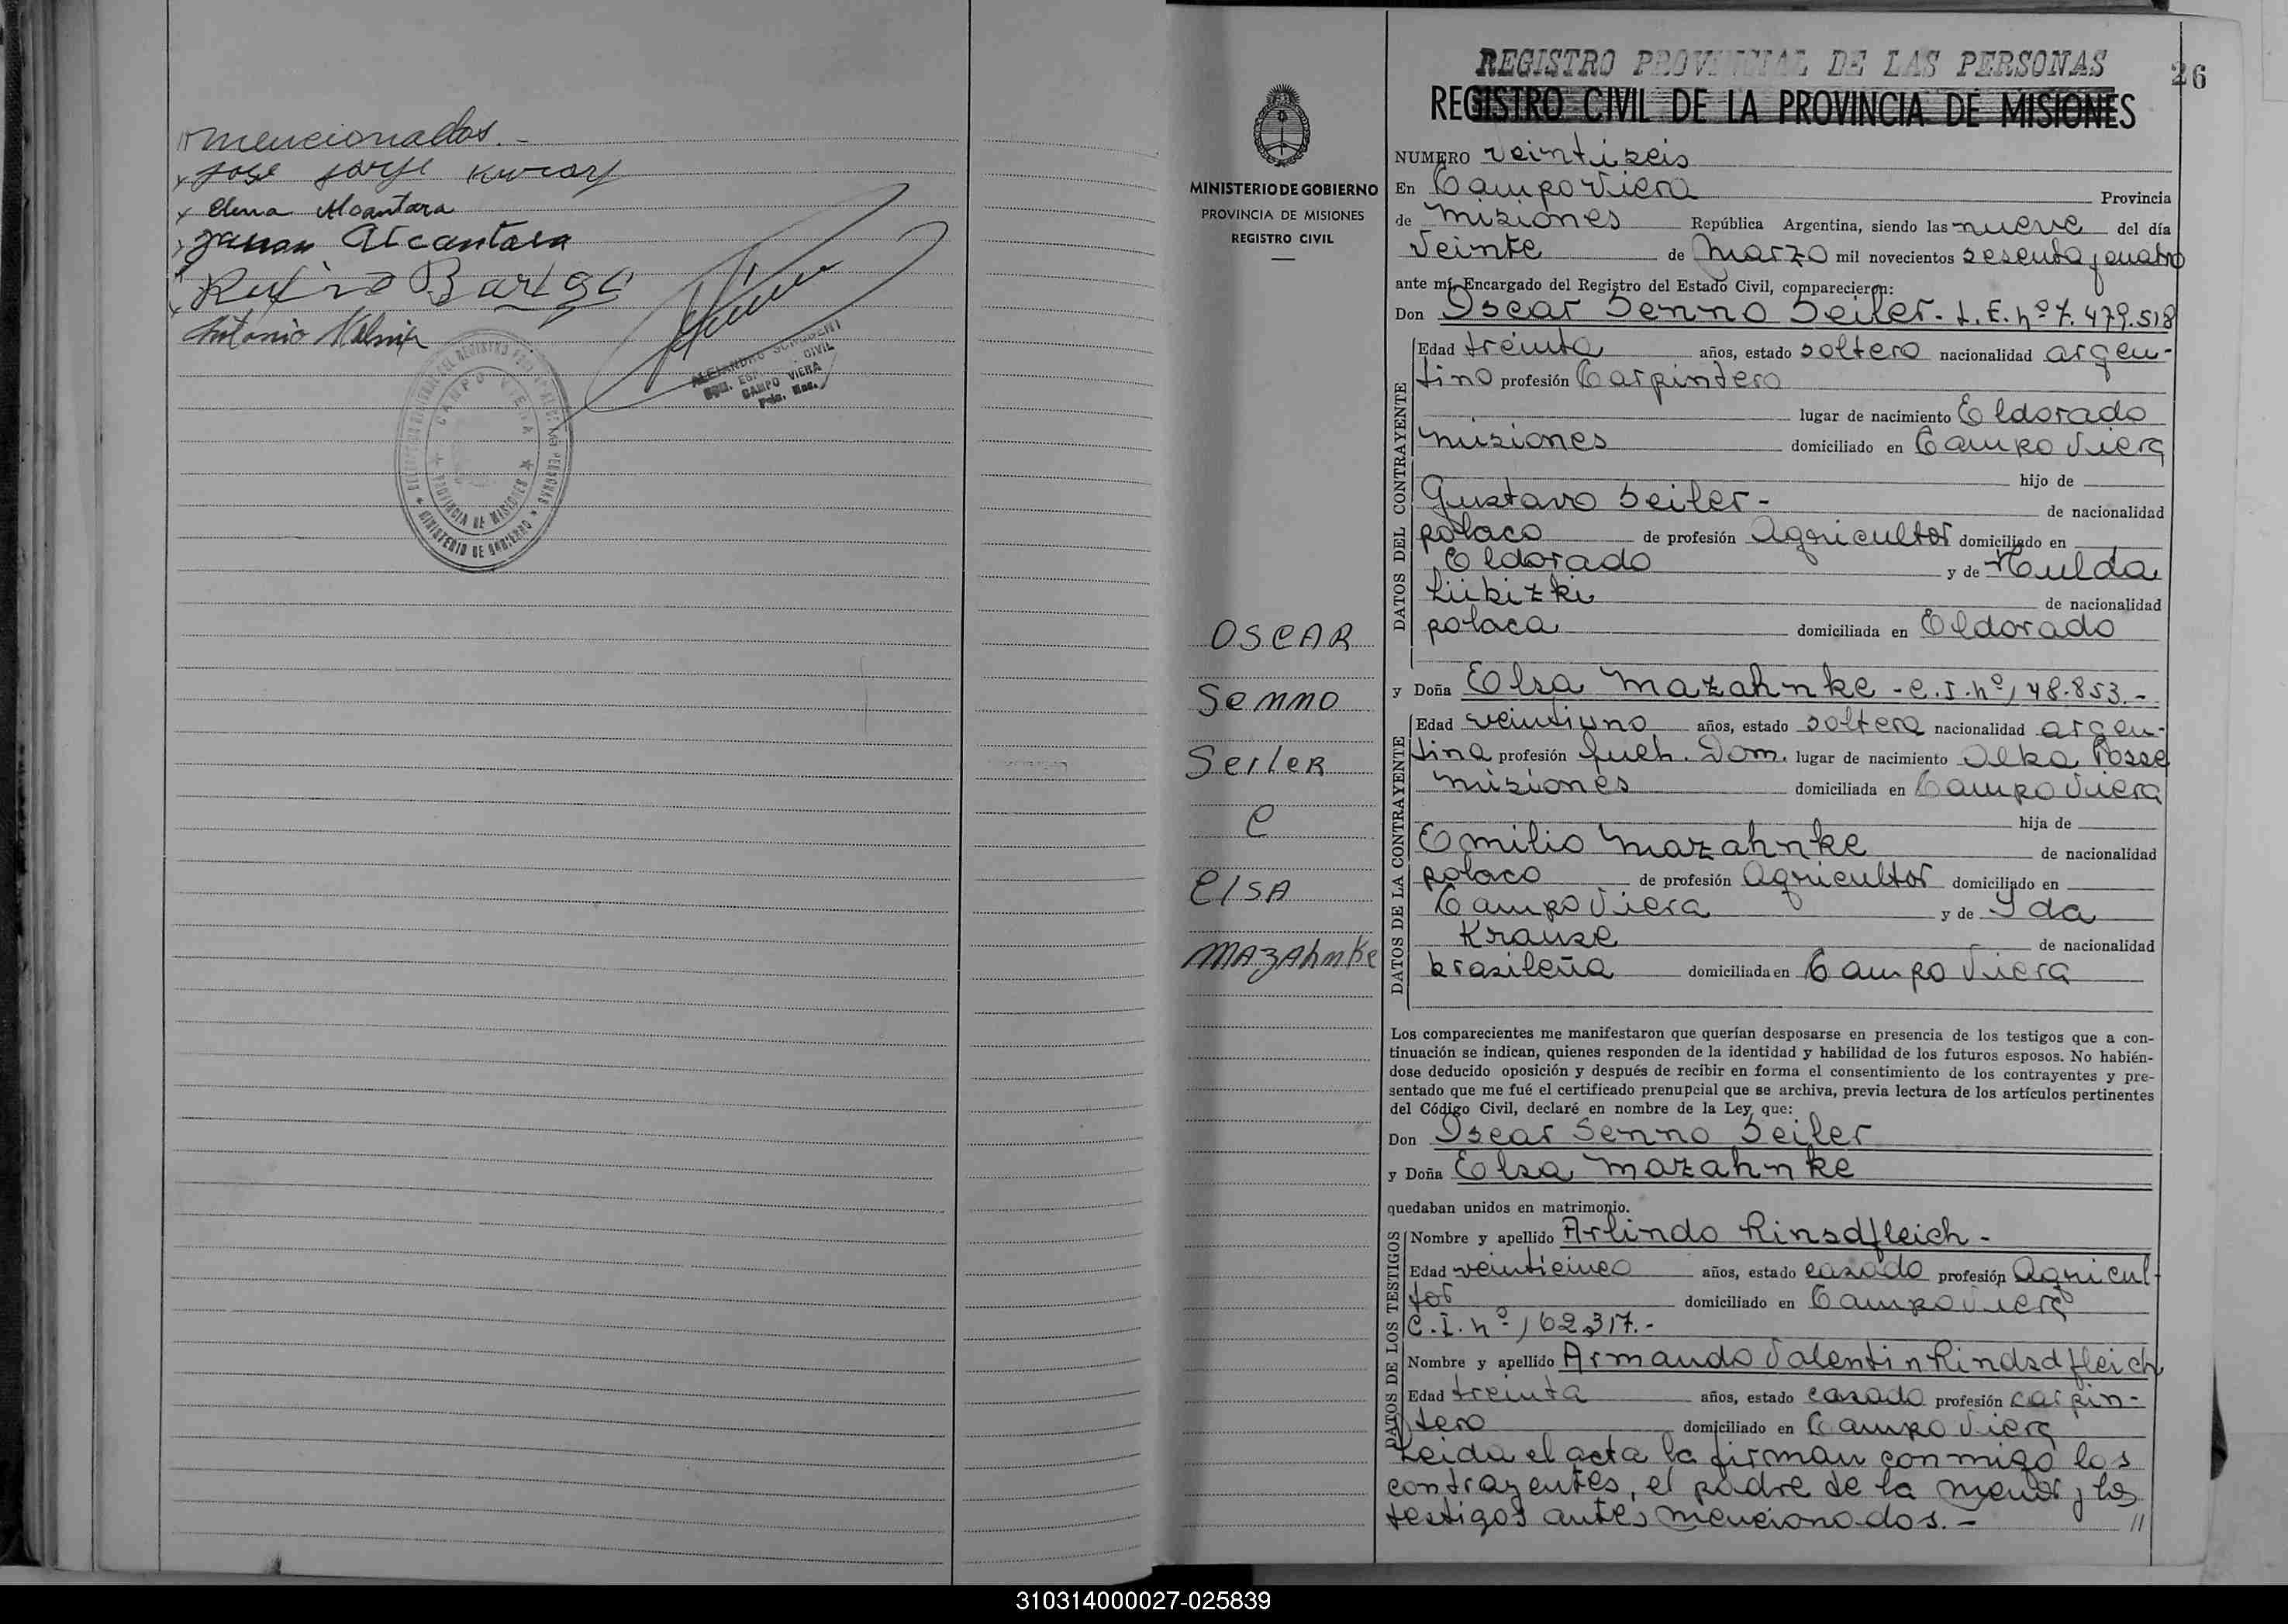 mencionados.-
x Jose Jorge
x Elena Alcantara
Alcantara
Rufino
Antonio
ALEJANDRO
CIVIL
CAMPO VIERA
CAMPO VIERA
PROVINCIA DE MISIONES
MINISTERIO DE GOBIERNO
REGISTRO PROVINCIAL DE LAS PERSONAS
26
REGISTRO CIVIL DE LA PROVINCIA DE MISIONES
MINISTERIO DE GOBIERNO
PROVINCIA DE MISIONES
REGISTRO CIVIL
OSCAR
Senno
SeileR
e
elSA
MAZAhnKe
NUMERO veintiseis
En Campo Viera Provincia
de Misiones República Argentina, siendo las nueve del día
Veinte de Marzo mil novecientos sesenta y cuatro
ante mí, Encargado del Registro del Estado Civil, comparecieron:
Don Oscar Senno Seiler - L.E. nº 7.479.518
DATOS DEL CONTRAYENTE
Edad treinta años, estado soltero nacionalidad argen-
tino profesión Carpintero
lugar de nacimiento Eldorado
Misiones domiciliado en Campo Viera
hijo de
Gustavo Seiler - de nacionalidad
polaco de profesión Agricultor domiciliado en
Eldorado y de Hulda
Lübizki de nacionalidad
polaca domiciliada en Eldorado
y Doña Elsa Mazahnke - C.I. nº 148.853.-
DATOS DE LA CONTRAYENTE
Edad veintiuno años, estado soltera nacionalidad argen-
tina profesión Queh. Dom. lugar de nacimiento Alba Posse
Misiones domiciliada en Campo Viera
hija de
Emilio Mazahnke de nacionalidad
polaco de profesión Agricultor domiciliado en
Campo Viera y de Yda
Krause de nacionalidad
brasileña domiciliada en Campo Viera
Los comparecientes me manifestaron que querían desposarse en presencia de los testigos que a con-
tinuación se indican, quienes responden de la identidad y habilidad de los futuros esposos. No habién-
dose deducido oposición y después de recibir en forma el consentimiento de los contrayentes y pre-
sentado que me fué el certificado prenupcial que se archiva, previa lectura de los artículos pertinentes
del Código Civil, declaré en nombre de la Ley, que:
Don Oscar Senno Seiler
y Doña Elsa Mazahnke
quedaban unidos en matrimonio.
DATOS DE LOS TESTIGOS
Nombre y apellido Arlindo Rinsdfleich -
Edad veinticinco años, estado casado profesión Agricul-
tor domiciliado en Campo Viera
C.I. nº 162.317.-
Nombre y apellido Armando Valentin Rindsdfleich
Edad treinta años, estado casado profesión carpin-
tero domiciliado en Campo Viera
Leida el acta la firman conmigo los
contrayentes, el padre de la menor y los
testigos antes mencionados.- //
310314000027-025839